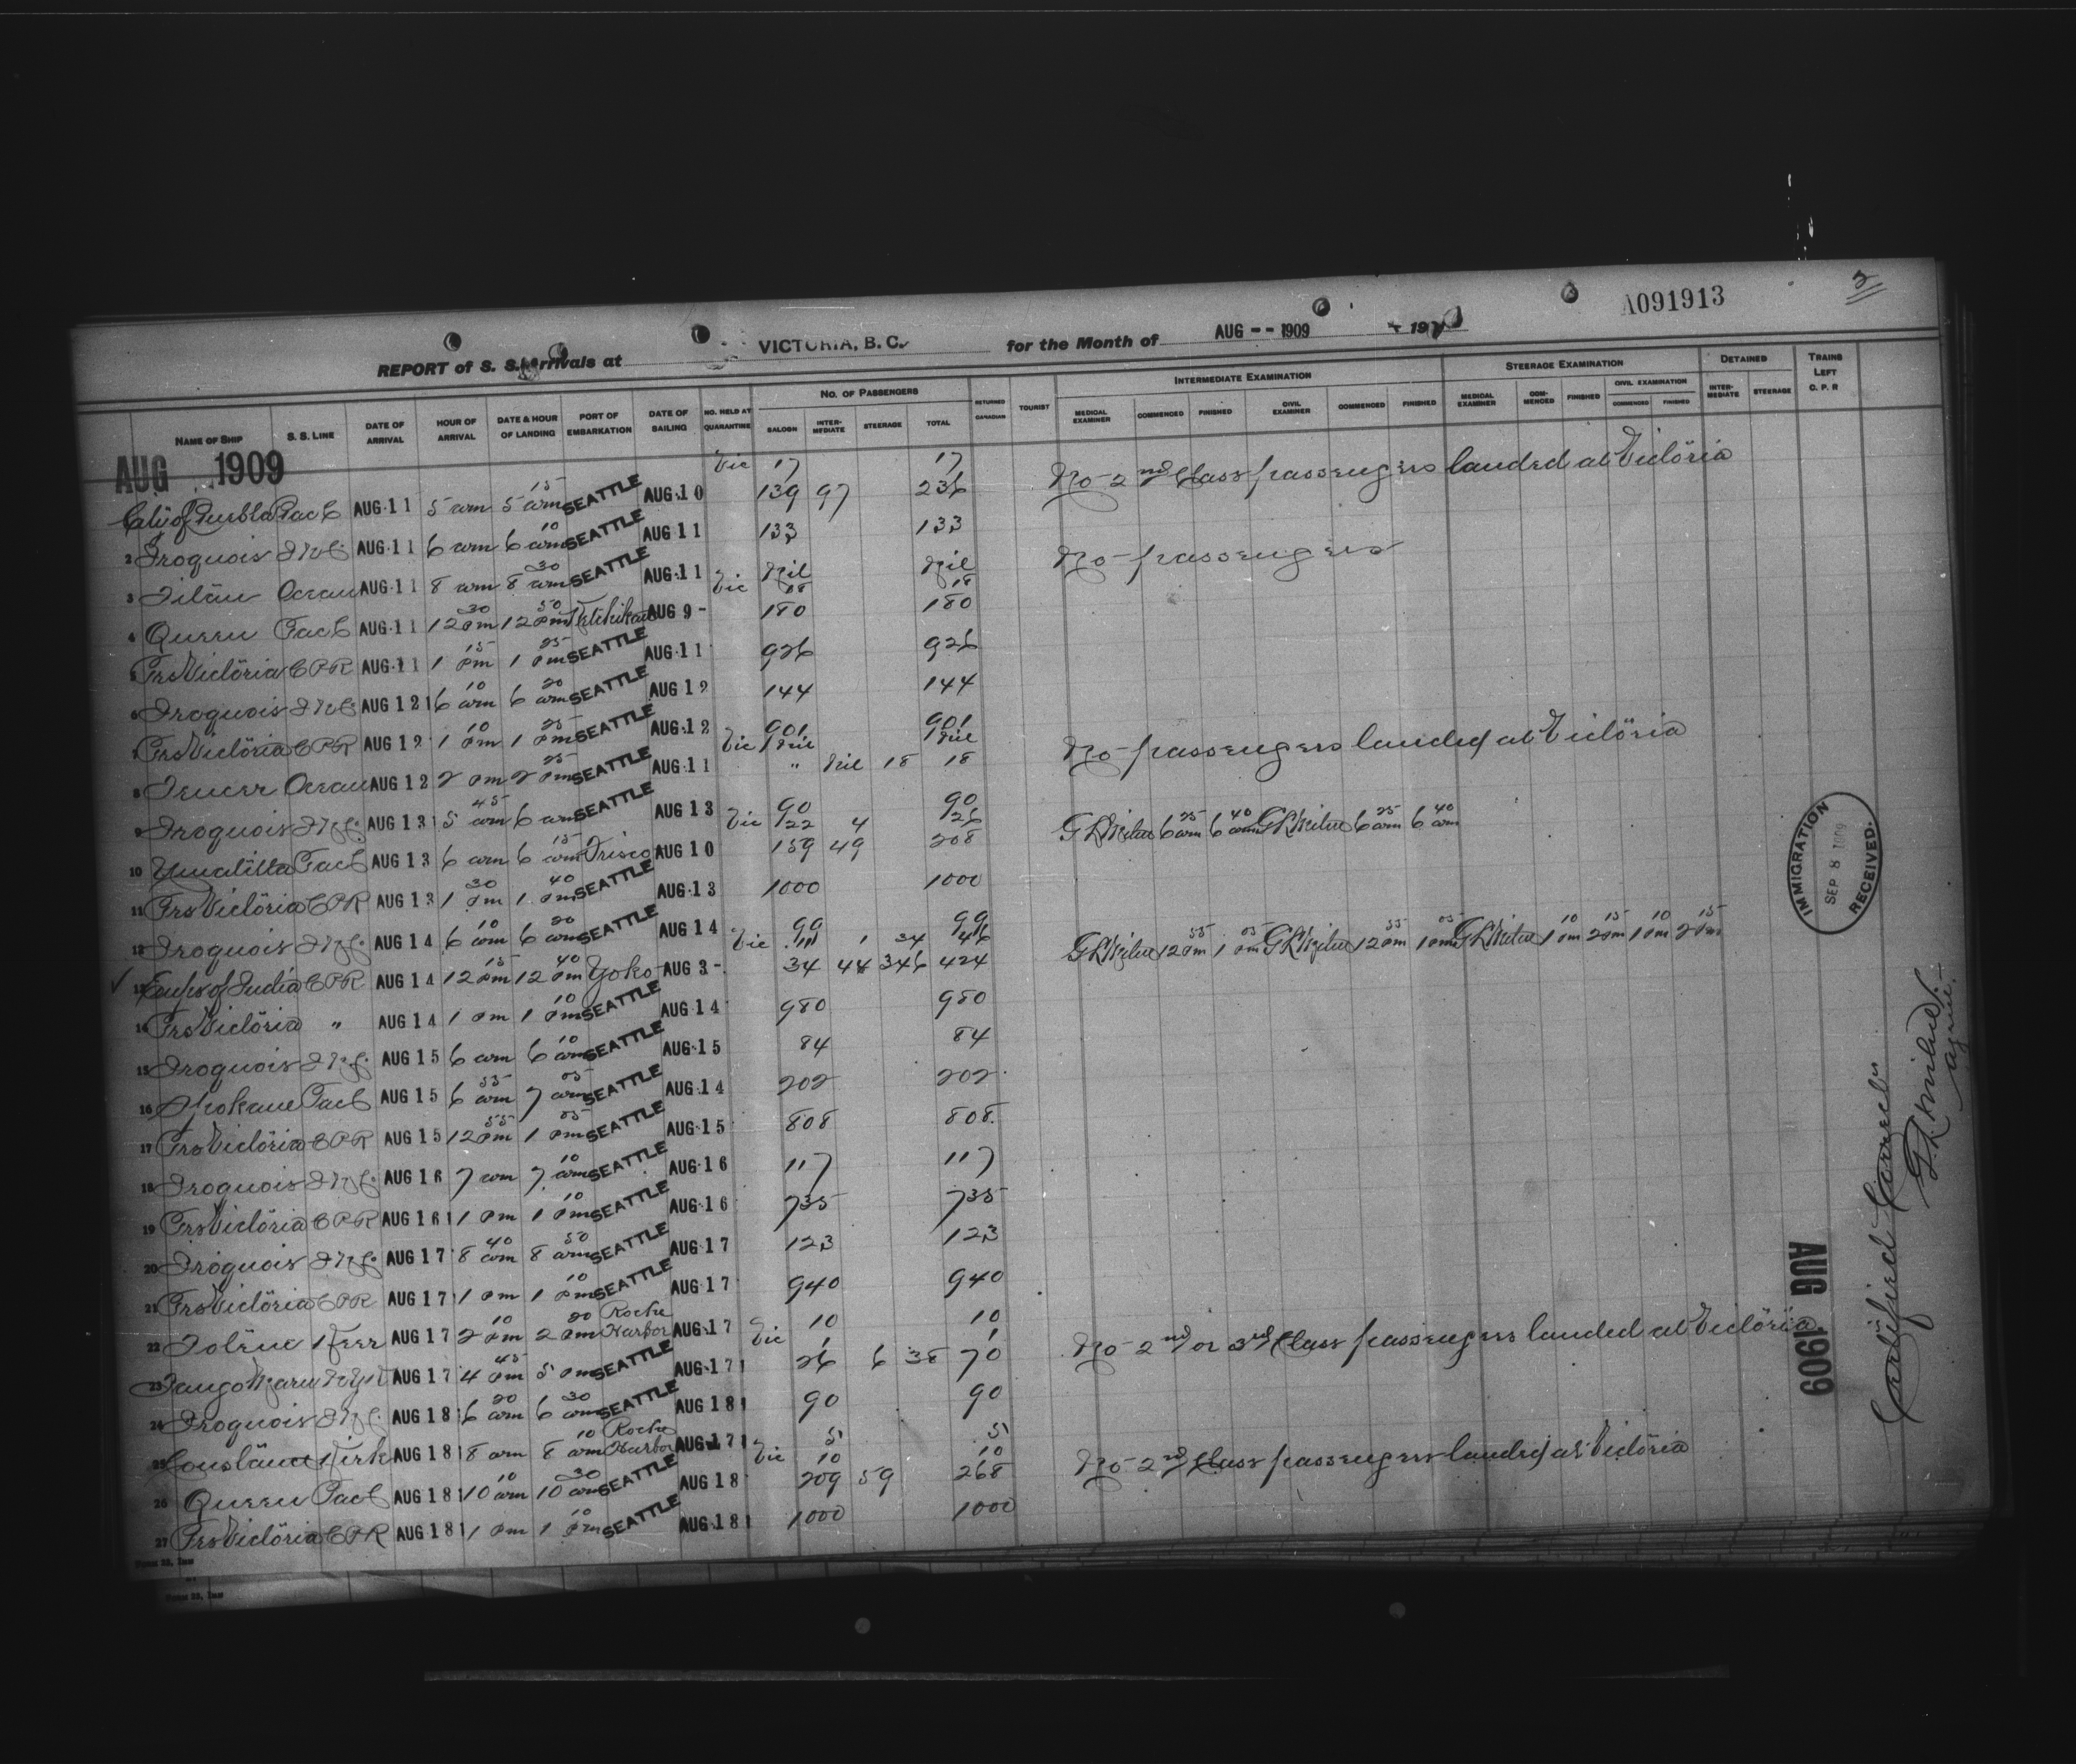 A091913
2
REPORT of S. S. Arrivals at VICTORIA, B. C. for the Month of AUG -- 1909 191
NAME OF SHIP S. S. LINE DATE OF ARRIVAL HOUR OF ARRIVAL DATE & HOUR OF LANDING PORT OF EMBARKATION DATE OF SAILING NO. HELD AT QUARANTINE NO. OF PASSENGERS SALOON INTERMEDIATE STEERAGE TOTAL RETURNED CANADIAN TOURIST INTERMEDIATE EXAMINATION MEDICAL EXAMINER COMMENCED FINISHED CIVIL EXAMINER COMMENCED FINISHED STEERAGE EXAMINATION MEDICAL EXAMINER COMMENCED FINISHED CIVIL EXAMINATION COMMENCED FINISHED DETAINED INTERMEDIATE STEERAGE TRAINS LEFT C. P. R
AUG 1909
Vic 17 17 No 2nd Class passengers landed at Victoria
City of Puebla Pac C AUG 11 5 am 5 15 am SEATTLE AUG 10 139 97 236
2 Iroquois AUG 11 6 am 6 10 am SEATTLE AUG 11 133 133
3 Ocean AUG 11 8 am 8 30 am SEATTLE AUG 11 Nil Nil No passengers
Vic 18 18
4 Queen Pac C AUG 11 12 30 pm 12 50 pm Ketchikan AUG 9 - 180 180
5 Prs Victoria CPR AUG 11 1 15 pm 1 25 pm SEATTLE AUG 11 926 926
6 Iroquois AUG 12 6 10 am 6 20 am SEATTLE AUG 12 144 144
7 Prs Victoria CPR AUG 12 1 10 pm 1 25 pm SEATTLE AUG 12 901 901
Vic Nil Nil No passengers landed at Victoria
8 Teucer Ocean AUG 12 2 pm 2 25 pm SEATTLE AUG 11 " Nil 18 18
9 Iroquois AUG 13 5 45 am 6 am SEATTLE AUG 13 90 90
Vic 22 4 26 G L Milne 6 25 am 6 40 am G L Milne 6 25 am 6 40 am
10 Umatilla Pac C AUG 13 6 am 6 15 am Frisco AUG 10 159 49 208
11 Prs Victoria CPR AUG 13 1 30 pm 1 40 pm SEATTLE AUG 13 1000 1000
12 Iroquois AUG 14 6 10 am 6 20 am SEATTLE AUG 14 99 99
Vic 11 1 34 46 G L Milne 12 55 pm 1 05 pm G L Milne 12 55 pm 1 05 pm G L Milne 1 10 pm 2 15 pm 1 10 pm 2 15 pm
13 Emprs of India CPR AUG 14 12 15 pm 12 40 pm Yoko AUG 3 - 34 44 346 424
14 Prs Victoria " AUG 14 1 pm 1 10 pm SEATTLE AUG 14 980 980
15 Iroquois AUG 15 6 am 6 10 am SEATTLE AUG 15 84 84
16 Spokane Pac C AUG 15 6 55 am 7 05 am SEATTLE AUG 14 202 202
17 Prs Victoria CPR AUG 15 12 55 pm 1 05 pm SEATTLE AUG 15 808 808
18 Iroquois AUG 16 7 am 7 10 am SEATTLE AUG 16 117 117
19 Prs Victoria CPR AUG 16 1 pm 1 10 pm SEATTLE AUG 16 735 735
20 Iroquois AUG 17 8 40 am 8 50 am SEATTLE AUG 17 123 123
21 Prs Victoria CPR AUG 17 1 pm 1 10 pm SEATTLE AUG 17 940 940
22 AUG 17 2 10 pm 2 20 pm Roche Harbor AUG 17 10 10
Vic 1 1 No 2nd or 3rd Class passengers landed at Victoria
23 Tango Maru AUG 17 4 45 pm 5 pm SEATTLE AUG 17 26 6 38 70
24 Iroquois AUG 18 6 20 am 6 30 am SEATTLE AUG 18 90 90
25 Constance Kirk AUG 18 8 am 8 10 am Roche Harbor AUG 17 5 5
Vic 10 10 No 2nd Class passengers landed at Victoria
26 Queen Pac C AUG 18 10 10 am 10 30 am SEATTLE AUG 18 209 59 268
27 Prs Victoria CPR AUG 18 1 pm 1 10 pm SEATTLE AUG 18 1000 1000
IMMIGRATION
SEP 8 1909
RECEIVED.
AUG 1909
Certified Correct
G. L. Milne
Agent